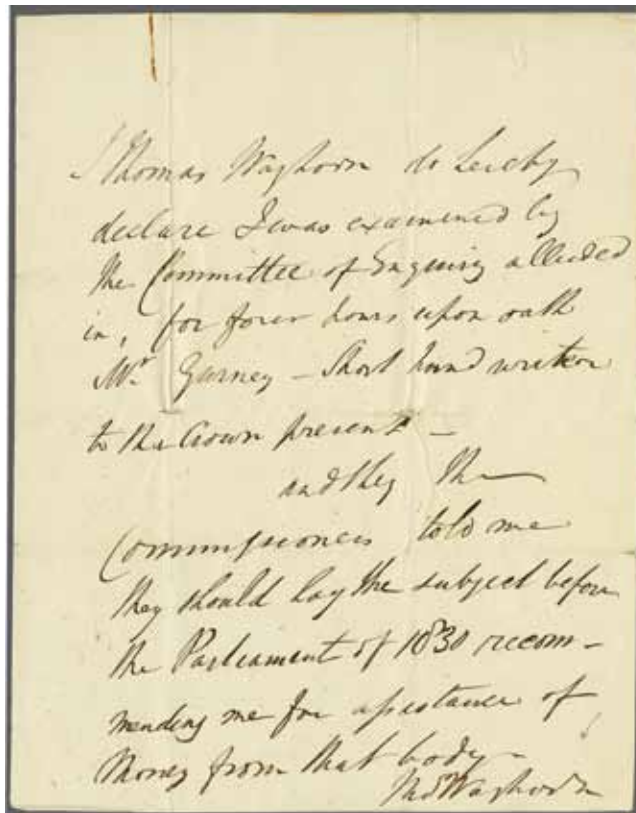 I Thomas Waghorn do hereby
declare I was examined by
the Committee of Enquiry alluded
in, for four hours upon oath
Mr. Gurney – Short hand writer
to the Crown present –
and they the
Commissioners told me
they should lay the subject before
the Parliament of 1830 recom-
mending me for assistance of
Money from that body –
Thos Waghorn